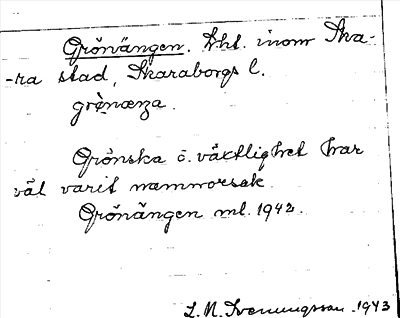 Grönängen. Lht. inom Ska-
-ra stad, Skaraborgs l.
grö̀nænga.
Grönska o. växtlighet har
väl varit namnorsak.
Grönängen ml. 1942.
L. N. Svenungsson. 1943